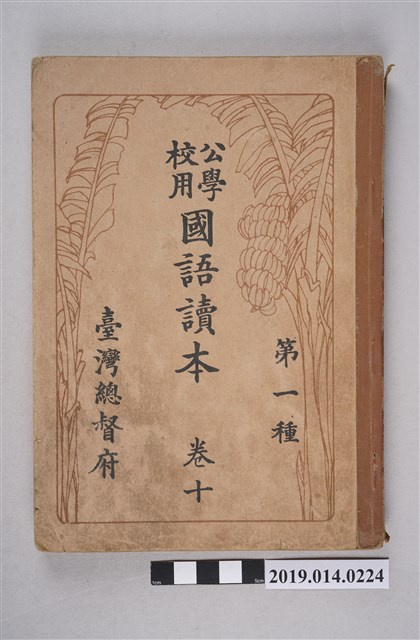 第一種
公學校用
國語讀本 卷十
臺灣總督府
1cm
5cm
2019.014.0224